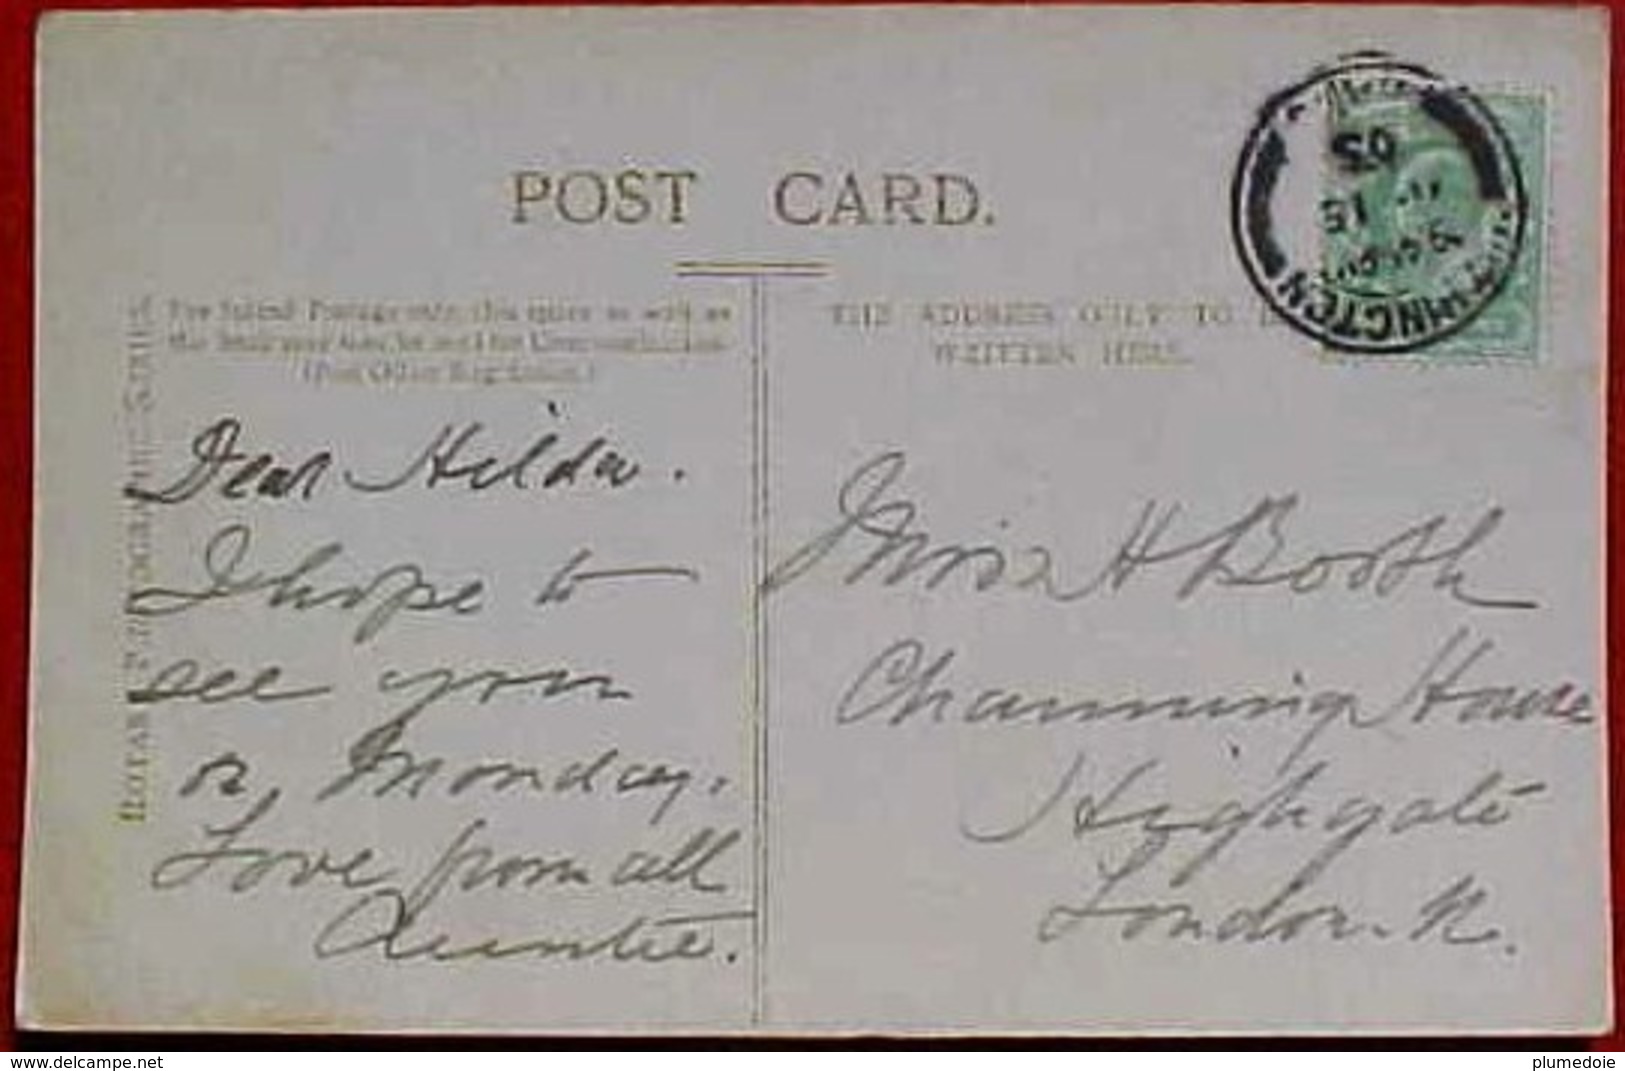 POST CARD.
For Inland Postage only, this space as well as
the back may now be used for Communication.
(Post Office Regulation.)
THE ADDRESS ONLY TO BE
WRITTEN HERE.
ROTARY PHOTOGRAPHIC SERIES
05
15
Dear Hilda.
I hope to
see you
on Monday.
Love from all
Auntie.
Miss H Booth
Channing House
Highgate
London. N.
delcampe.net
plumedoie